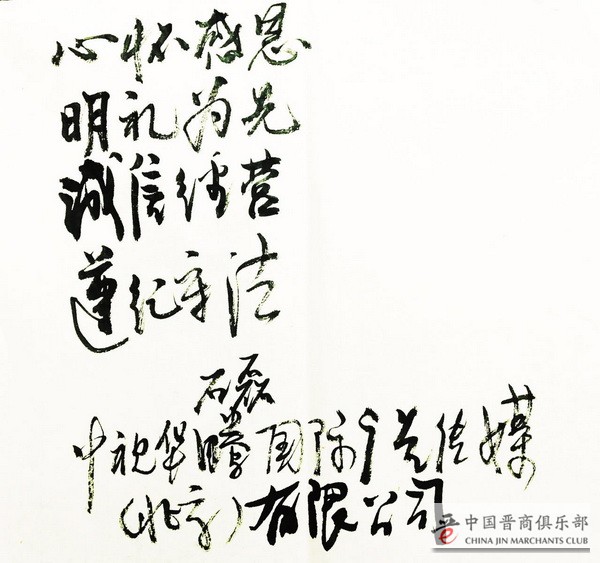 心怀感恩
明礼为先
诚信经营
遵纪守法
石磊
中视华腾国际广告传媒
(北京)有限公司
中国晋商俱乐部
CHINA JIN MARCHANTS CLUB